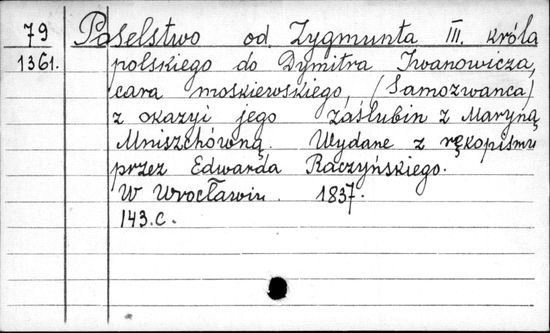 79 Poselstwo od Zygmunta III. króla
1361. polskiego do Dymitra Iwanowicza,
cara moskiewskiego, (Samozwanca)
z okazyi jego zaślubin z Maryną
Mniszchówną. Wydane z rękopismu
przez Edwarda Raczyńskiego.
W Wrocławiu. 1837.
143.c.